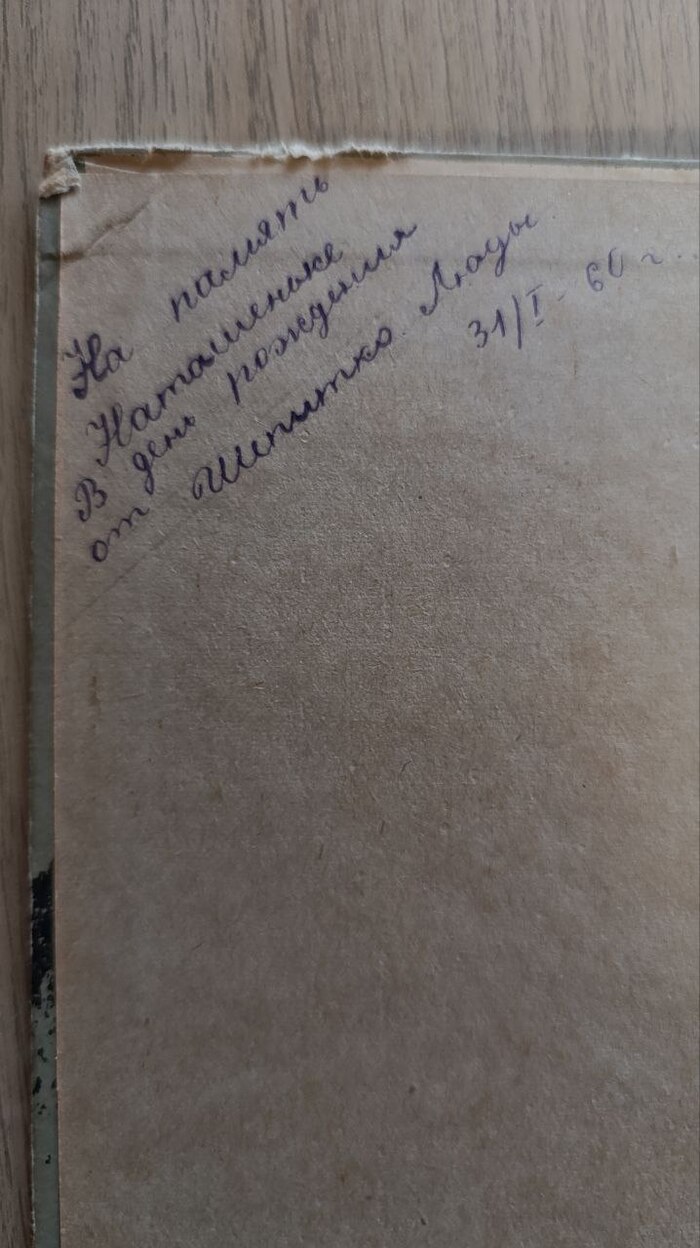 На память
Наташеньке
В день рождения
от Шпитко Люды
31/I - 60 г.